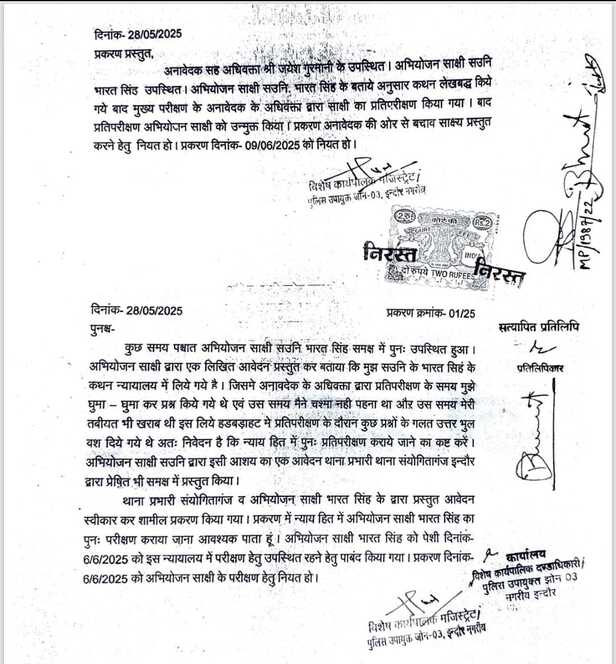 दिनांक- 28/05/2025
प्रकरण प्रस्तुत,
अनावेदक सह अधिवक्ता श्री जयेश गुरमानी के उपस्थित। अभियोजन साक्षी सउनि
भारत सिंह उपस्थित। अभियोजन साक्षी सउनि, भारत सिंह के बताये अनुसार कथन लेखबद्ध किये
गये बाद मुख्य परीक्षण के अनावेदक के अधिवक्ता द्वारा साक्षी का प्रतिपरीक्षण किया गया। बाद
प्रतिपरीक्षण अभियोजन साक्षी को उन्मुक्त किया। प्रकरण अनावेदक की ओर से बचाव साक्ष्य प्रस्तुत
करने हेतु नियत हो। प्रकरण दिनांक- 09/06/2025 को नियत हो।
विशेष कार्यपालक मजिस्ट्रेट/
पुलिस उपायुक्त जोन-03, इन्दौर नगरीय
MP/1987/22
Rs.2
INDIA
दो रुपये TWO RUPEES
निरस्त
निरस्त
दिनांक- 28/05/2025
प्रकरण क्रमांक- 01/25
पुनश्च-
कुछ समय पश्चात अभियोजन साक्षी सउनि भारत सिंह समक्ष में पुनः उपस्थित हुआ।
अभियोजन साक्षी द्वारा एक लिखित आवेदन प्रस्तुत कर बताया कि मुझ सउनि के भारत सिंह के
कथन न्यायालय में लिये गये है। जिसमे अनावदेक के अधिवक्ता द्वारा प्रतिपरीक्षण के समय मुझे
घुमा – घुमा कर प्रश्न किये गये थे एवं उस समय मैने चश्मा नही पहना था और उस समय मेरी
तबीयत भी खराब थी इस लिये हडबड़ाहट मे प्रतिपरीक्षण के दौरान कुछ प्रश्नों के गलत उत्तर भुल
वश दिये गये थे अतः निवेदन है कि न्याय हित में पुनः प्रतिपरीक्षण कराये जाने का कष्ट करें।
अभियोजन साक्षी सउनि द्वारा इसी आशय का एक आवेदन थाना प्रभारी थाना संयोगितागंज इन्दौर
द्वारा प्रेषित भी समक्ष में प्रस्तुत किया।
थाना प्रभारी संयोगितागंज व अभियोजन साक्षी भारत सिंह के द्वारा प्रस्तुत आवेदन
स्वीकार कर शामील प्रकरण किया गया। प्रकरण में न्याय हित में अभियोजन साक्षी भारत सिंह का
पुनः परीक्षण कराया जाना आवश्यक पाता हूं। अभियोजन साक्षी भारत सिंह को पेशी दिनांक-
6/6/2025 को इस न्यायालय में परीक्षण हेतु उपस्थित रहने हेतु पाबंद किया गया। प्रकरण दिनांक-
6/6/2025 को अभियोजन साक्षी के परीक्षण हेतु नियत हो।
विशेष कार्यपालक मजिस्ट्रेट/
पुलिस उपायुक्त जोन-03, इन्दौर नगरीय
सत्यापित प्रतिलिपि
प्रतिलिपिकार
कार्यालय
विशेष कार्यपालिक दण्डाधिकारी/
पुलिस उपायुक्त झोन 03
नगरीय इन्दौर